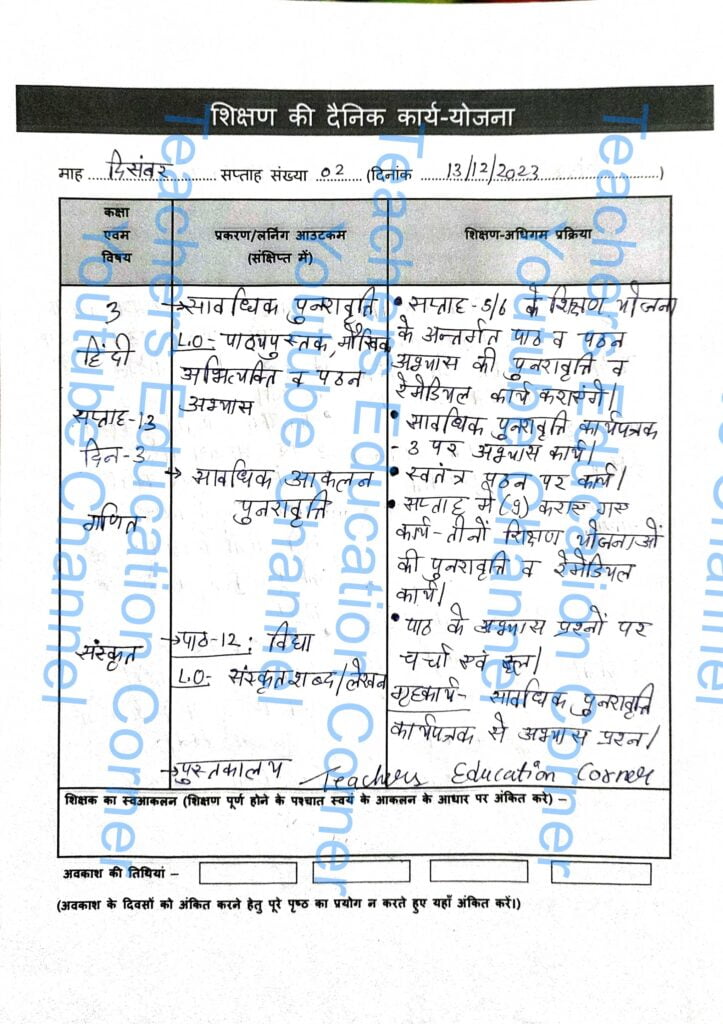 शिक्षण की दैनिक कार्य-योजना
माह दिसंबर सप्ताह संख्या 02 (दिनांक 13/12/2023)
कक्षा
एवम
विषय
प्रकरण/लर्निंग आउटकम
(संक्षिप्त में)
शिक्षण-अधिगम प्रक्रिया
3
हिंदी
सप्ताह-13
दिन-3
→सावधिक पुनरावृत्ति
L.O- पाठ्यपुस्तक, मौखिक
अभिव्यक्ति व पठन
अभ्यास
• सप्ताह-5/6 के शिक्षण योजना
के अन्तर्गत पाठ व पठन
अभ्यास की पुनरावृत्ति व
रेमेडियल कार्य कराएंगे।
• सावधिक पुनरावृत्ति कार्यपत्रक
-3 पर अभ्यास कार्य।
• स्वतंत्र पठन पर कार्य।
गणित
→ सावधिक आकलन
पुनरावृत्ति
• सप्ताह में (9) कराए गए
कार्य-तीनों शिक्षण योजनाओं
की पुनरावृत्ति व रेमेडियल
कार्य।
संस्कृत
→पाठ-12: विद्या
L.O- संस्कृत शब्द/लेखन
• पाठ के अभ्यास प्रश्नों पर
चर्चा एवं हल।
गृहकार्य- सावधिक पुनरावृत्ति
कार्यपत्रक से अभ्यास प्रश्न।
→पुस्तकालय
Teachers Education Corner
शिक्षक का स्वआकलन (शिक्षण पूर्ण होने के पश्चात स्वयं के आकलन के आधार पर अंकित करे) –
अवकाश की तिथियां –
(अवकाश के दिवसों को अंकित करने हेतु पूरे पृष्ठ का प्रयोग न करते हुए यहाँ अंकित करें।)
Teachers Education Corner
Youtube Channel
Teachers Education Corner
Youtube Channel
Teachers Education Corner
Youtube Channel